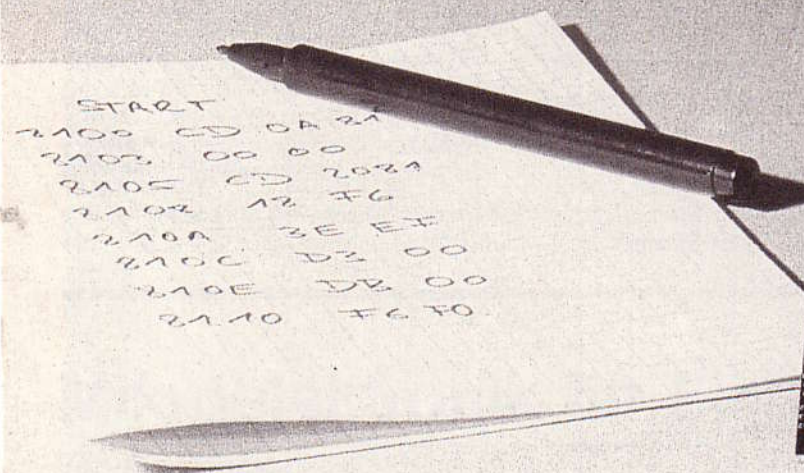 START
2100 CD 0A 21
2103 00 00
2105 CD 2021
2108 18 F6
210A 3E EF
210C D3 00
210E DB 00
2110 F6 F0